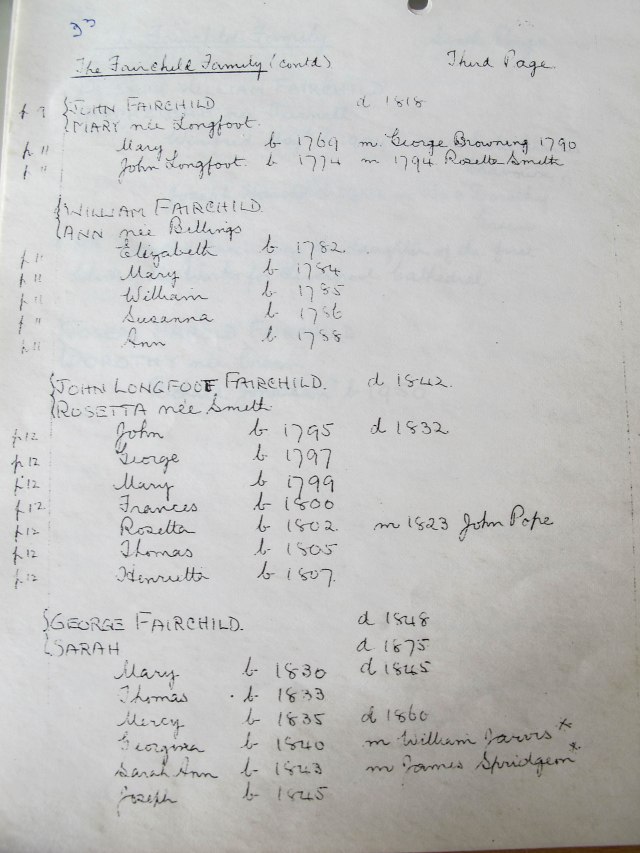 33
The Fairchild Family (contd) Third Page.
p 9 {JOHN FAIRCHILD d 1818
{MARY née Longfoot.
p 11 Mary b 1769 m George Browning 1790
p " John Longfoot b 1774 m 1794 Rosetta Smeth
{WILLIAM FAIRCHILD.
{ANN née Billings
p 11 Elizabeth b 1782.
p 11 Mary b 1784
p 11 William b 1785
p " Susanna b 1786
p 11 Ann b 1788
{JOHN LONGFOOT FAIRCHILD. d 1842.
{ROSETTA née Smeth
p 12 John b 1795 d 1832
p 12 George b 1797
p 12 Mary b 1799
p 12 Frances b 1800
p 12 Rosetta b 1802 m 1823 John Pope
p 12 Thomas b 1805
p 12 Henrietta b 1807.
{GEORGE FAIRCHILD. d 1848
{SARAH d 1875
Mary b 1830 d 1845
Thomas b 1833
Mercy b 1835 d 1860
Georgina b 1840 m William Jarvis*
Sarah Ann b 1843 m James Spridgeon*
Joseph b 1845